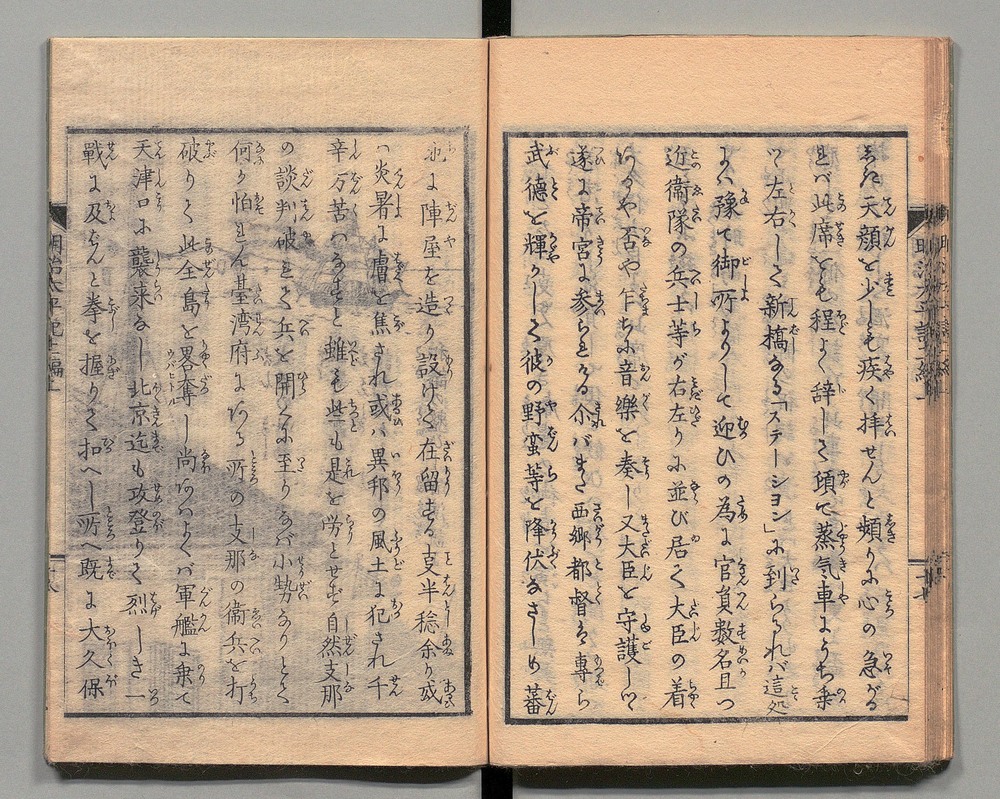 天顔を少しも疾く拝せんと頻りに心の急が
れバ此席をも程よく辞して頓て蒸気車にうち乗
ツ左右して新橋なる「ステーシヨン」に到られバ這処
にハ豫て御所よりして迎ひの為に官員数名且つ
近衛隊の兵士等が右左りに並び居て大臣の着
や否や乍ちに音樂を奏し又大臣を守護しツ
遂に帝宮に参らせる尓バまた西郷都督ハ専ら
武徳を輝かして彼の野蛮等を降伏なさしめ蕃
地に陣屋を造り設けて在留する支半稔余り或
ハ炎暑に膚を焦され或ハ異邦の風土に犯され千
辛万苦ハなすと雖も些も是を労とせず自然支那
の談判破れて兵を開くに至りなバ小勢なりとて
何か怕れん䑓湾府にある所の支那の衛兵を打
破りて此全島を畧奪し尚ほよくバ軍艦に乗て
天津口に襲来なし北京迄も攻登りて烈しき一
戰に及なんと拳を握りて扣へし所へ既に大久保